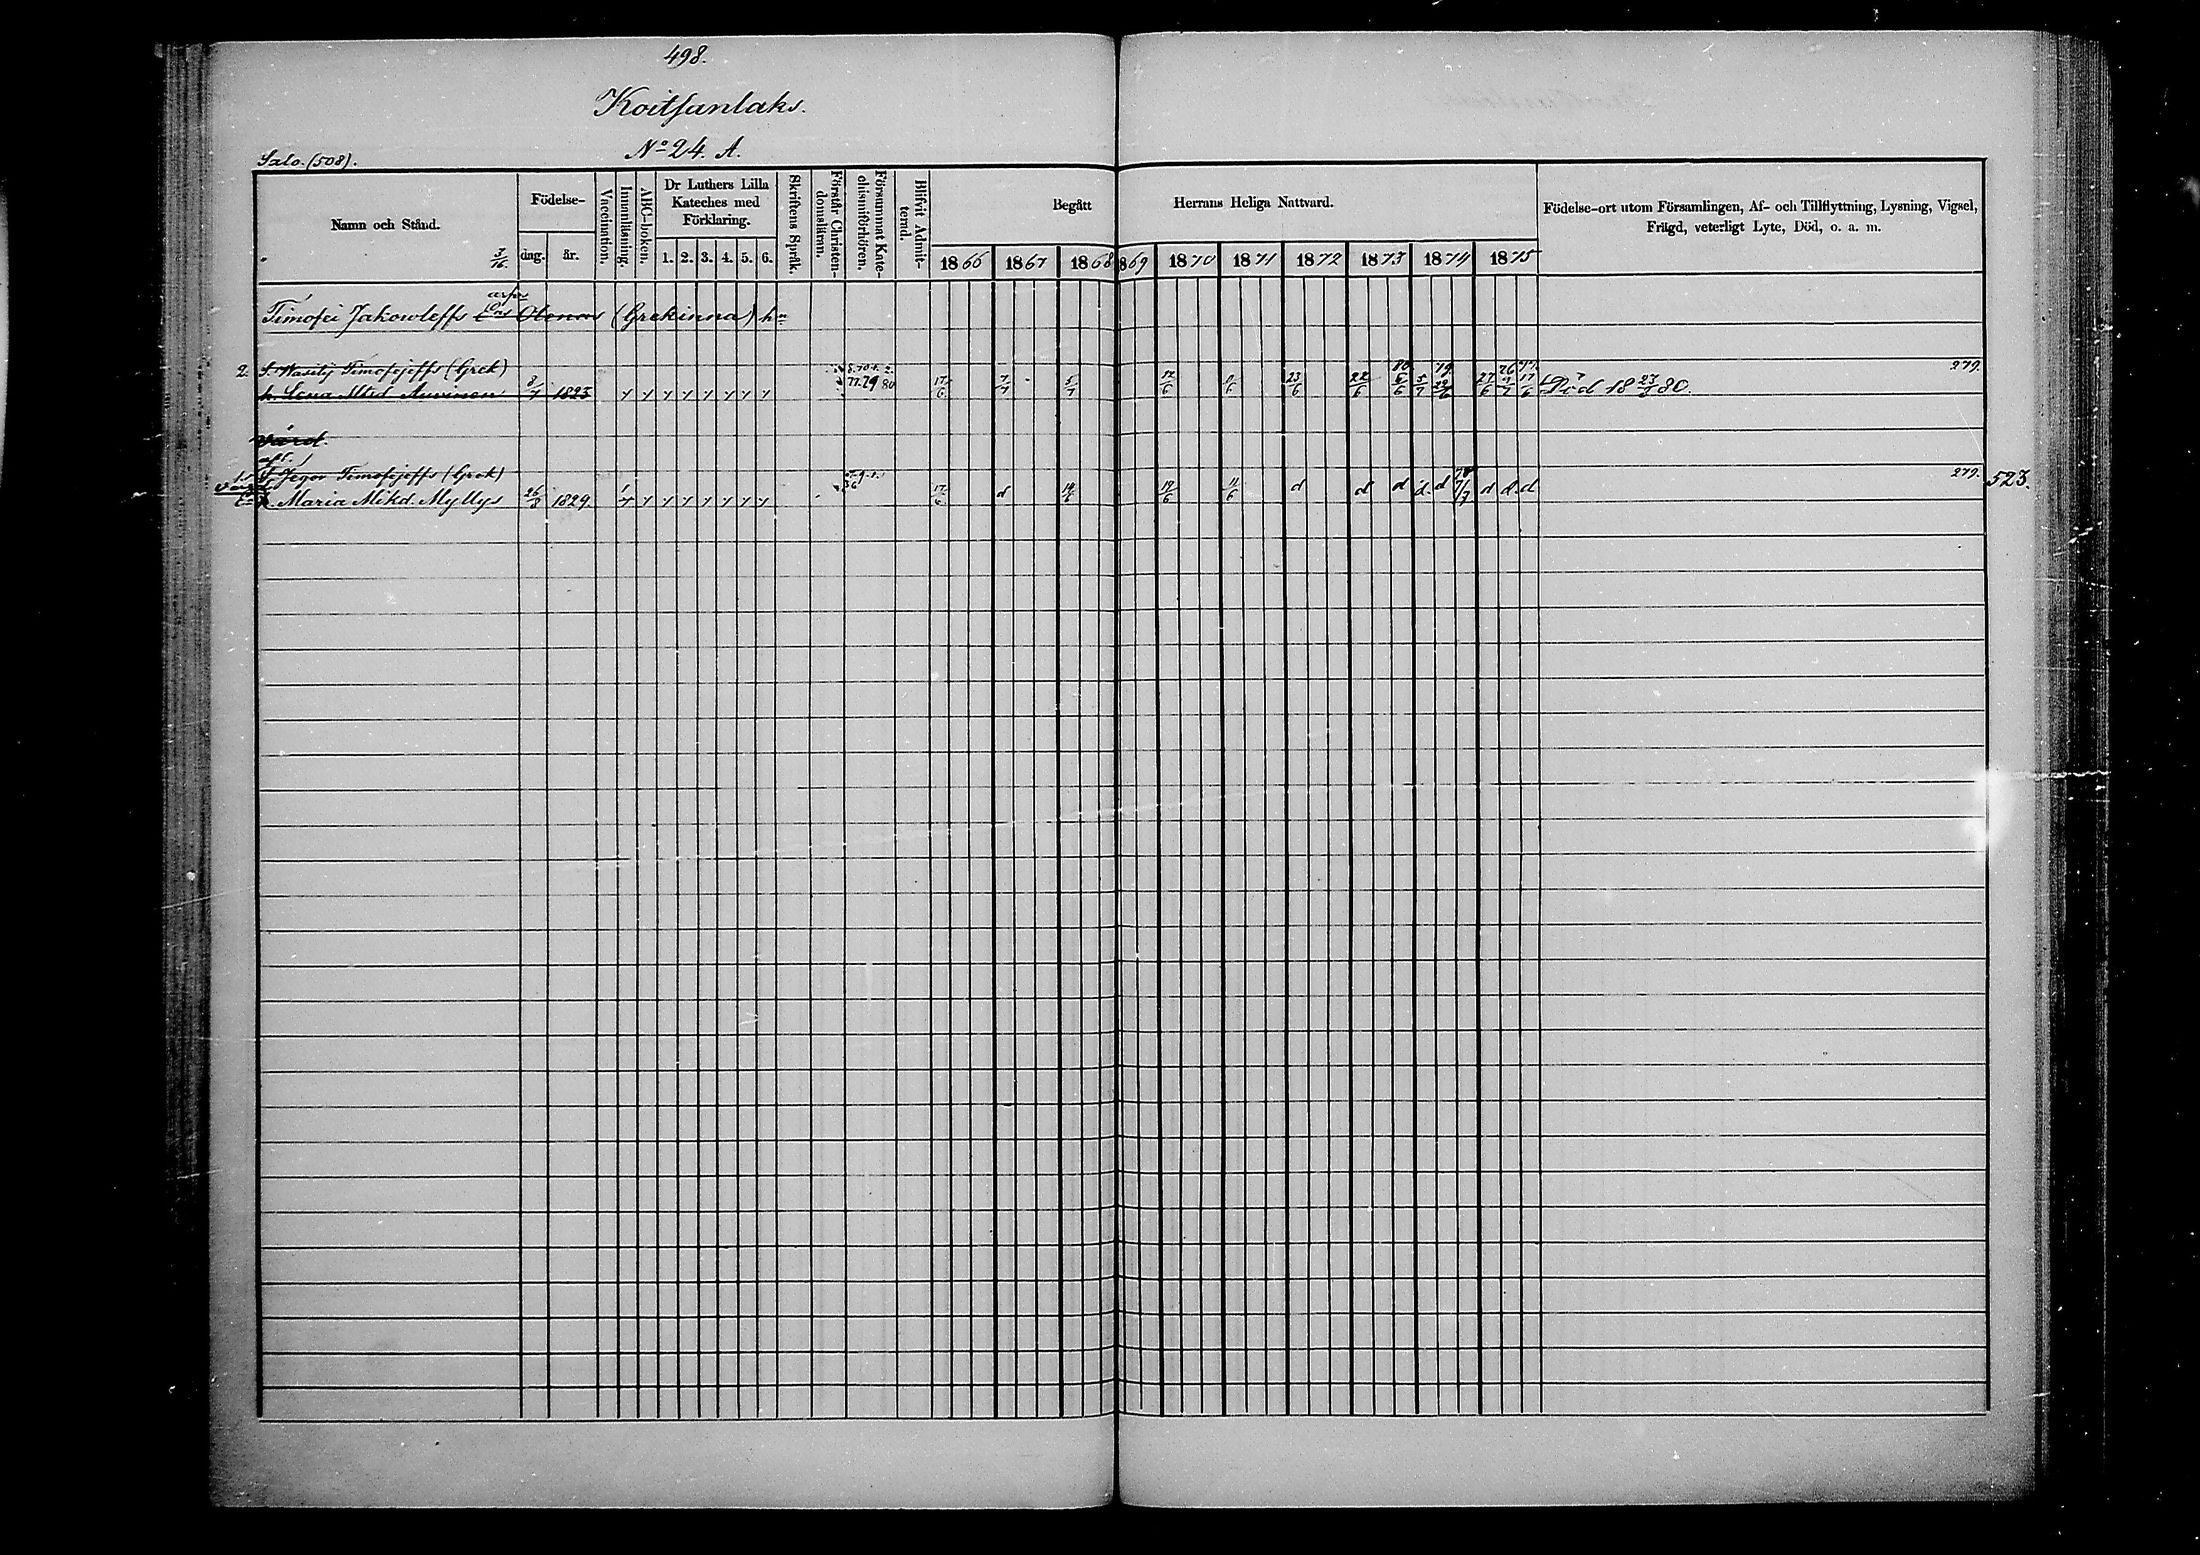 498.
Koitsanlaks.
Salo. (508).
No 24. A.
Namn och Stånd.
3/16.
Födelse-
dag.
år.
Vaccination.
Innanläsning.
ABC-boken.
Dr Luthers Lilla Kateches med Förklaring.
1. 2. 3. 4. 5. 6.
Skriftens Språk.
Förstår Christendomsläran.
Försummat Katechismiförhören.
Blifvit Admitterad.
Begått Herrans Heliga Nattvard.
1866 1867 1868 1869 1870 1871 1872 1873 1874 1875
Födelse-ort utom Församlingen, Af- och Tillflyttning, Lysning, Vigsel,
Frägd, veterligt Lyte, Död, o. a. m.
Timofei Jakowleffs (Grekinna) hn
2. S. Wasilij Timofejeffs (Grek) 279.
h. Lena Mtsd Auvinen 8/7 1823 77. 79 80 17/6 7/7 5/7 12/6 11/6 23/6 22/6 6/6 5/7 22/6 27/6 17/6 Död 18 27/3 80.
Jegor Timofejeffs (Grek) 279.
h. Maria Mikd. Myllys 26/3 1829. 17/6 d 14/6 19/6 11/6 d d d d d d d d 523.